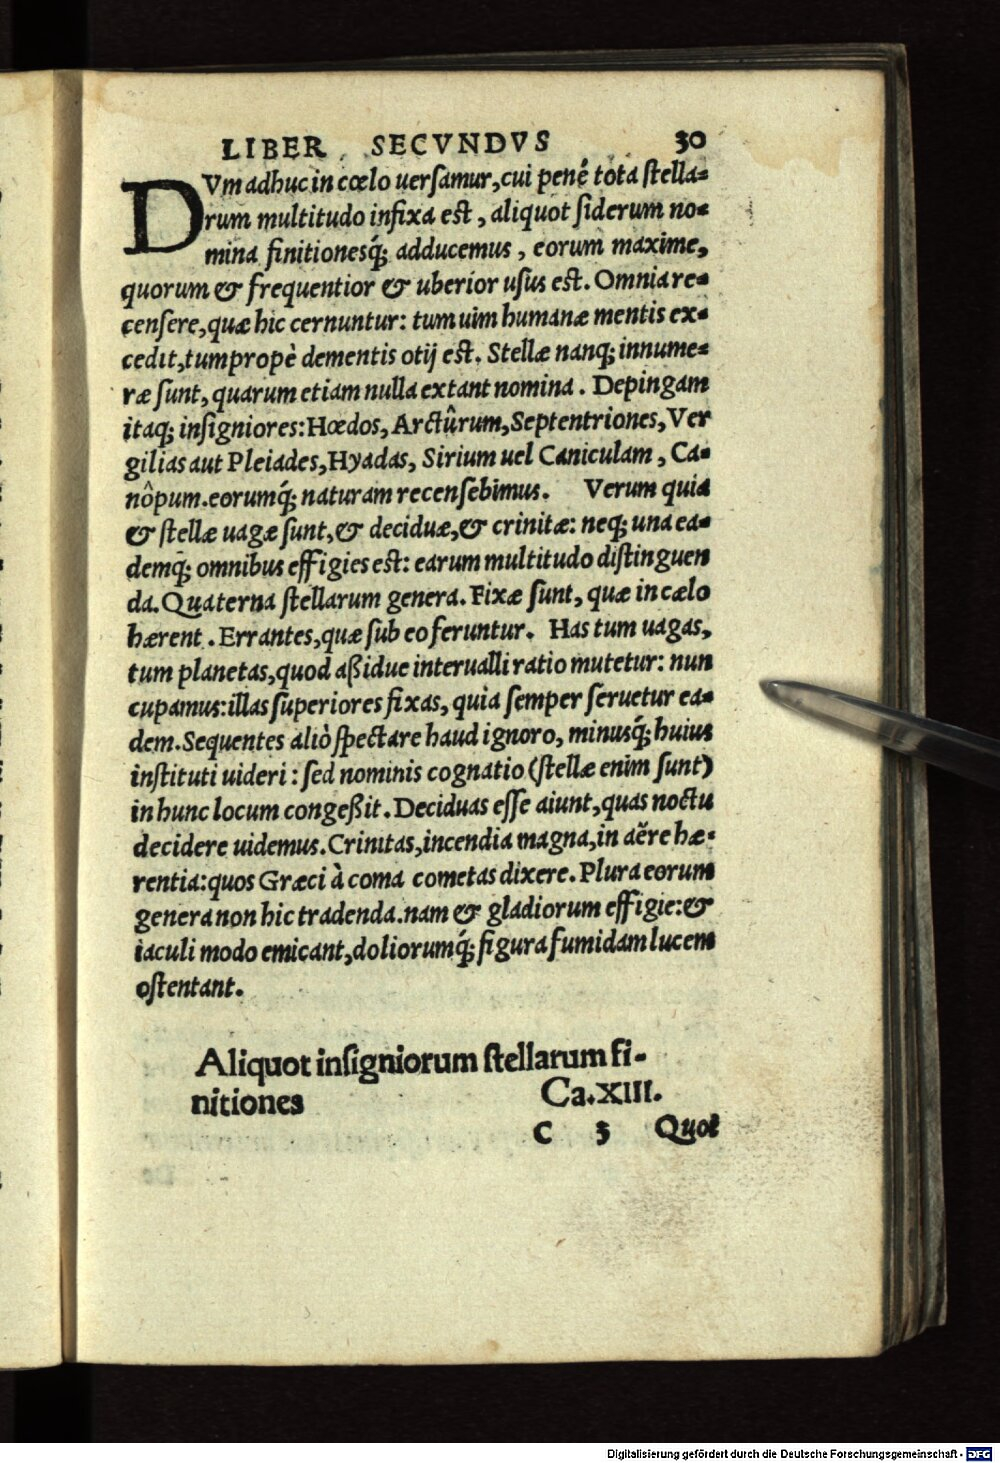 LIBER SECVNDVS 30
DVm adhuc in cœlo uersamur, cui penè tota stella-
rum multitudo infixa est, aliquot siderum no-
mina finitionesq́; adducemus, eorum maxime,
quorum & frequentior & uberior usus est. Omnia re-
censere, quæ hic cernuntur: tum uim humanæ mentis ex-
cedit, tum propè dementis otij est. Stellæ nanq; innume-
ræ sunt, quarum etiam nulla extant nomina. Depingam
itaq; insigniores: Hœdos, Arctûrum, Septentriones, Ver
gilias aut Pleiades, Hyadas, Sirium uel Caniculam, Ca-
nôpum. eorumq́; naturam recensebimus. Verum quia
& stellæ uagæ sunt, & deciduæ, & crinitæ: neq; una ea-
demq́; omnibus effigies est: earum multitudo distinguen
da. Quaterna stellarum genera. Fixæ sunt, quæ in cælo
hærent. Errantes, quæ sub eo feruntur. Has tum uagas,
tum planetas, quod aßidue interualli ratio mutetur: nun
cupamus: illas superiores fixas, quia semper seruetur ea-
dem. Sequentes aliò spectare haud ignoro, minusq́; huius
instituti uideri: sed nominis cognatio (stellæ enim sunt)
in hunc locum congeßit. Deciduas esse aiunt, quas noctu
decidere uidemus. Crinitas, incendia magna, in aëre hæ-
rentia: quos Græci à coma cometas dixere. Plura eorum
genera non hic tradenda. nam & gladiorum effigie: &
iaculi modo emicant, doliorumq́; figura fumidam lucem
ostentant.
Aliquot insigniorum stellarum fi-
nitiones Ca. XIII.
C 3 Quot
Digitalisierung gefördert durch die Deutsche Forschungsgemeinschaft - DFG